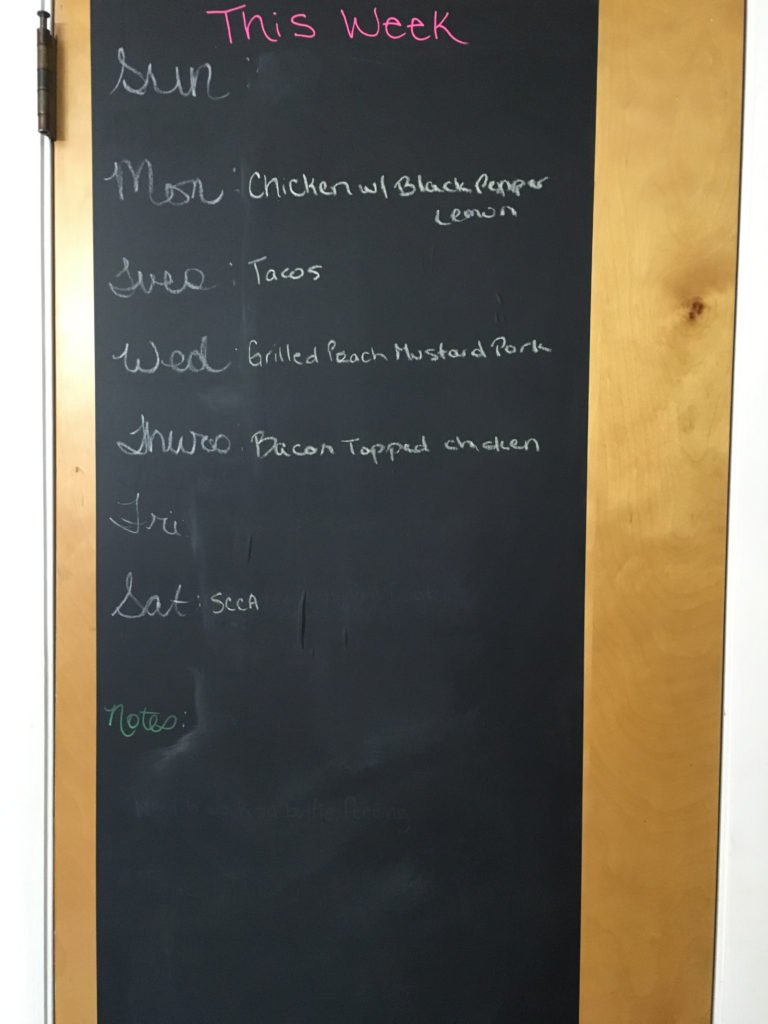 This Week
Sun :
Mon : Chicken w/ Black Pepper
Lemon
Tues : Tacos
Wed : Grilled Peach Mustard Pork
Thurs : Bacon Topped chicken
Fri
Sat : SCCA
Notes: